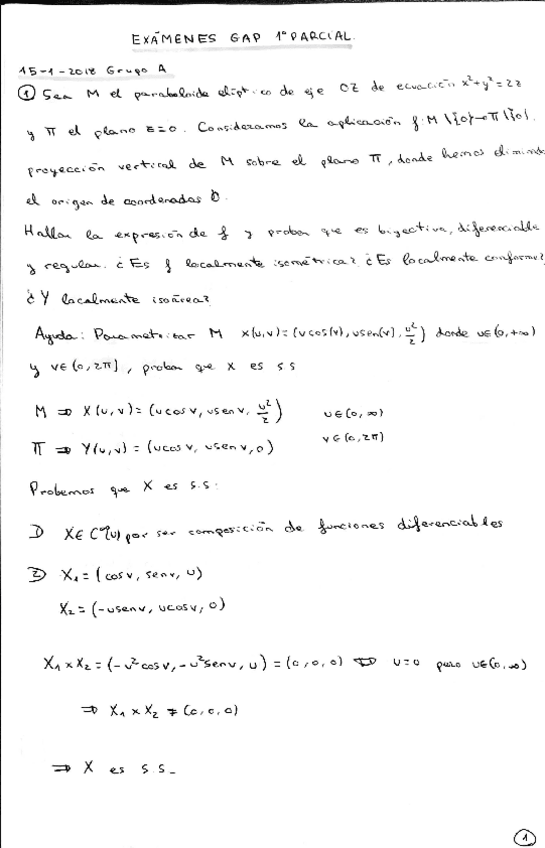 EXÁMENES GAP 1º PARCIAL.
15-1-2018 Grupo A
① Sea M el paraboloide elíptico de eje OZ de ecuación x²+y²=2z
y π el plano z=0. Consideramos la aplicación f: M\{0}→π\{0},
proyección vertical de M sobre el plano π, donde hemos elimin
el origen de coordenadas O.
Hallar la expresión de f y probar que es biyectiva, diferenciable
y regular. ¿Es f localmente isométrica? ¿Es localmente conforme?
¿Y localmente isoárea?
Ayuda: Parametrizar M x(u,v)=(ucos(v), usen(v), u²/2) donde u∈(0,+∞)
y v∈(0,2π], probar que x es s.s
M ⇒ X(u,v)=(ucosv, usenv, u²/2) u∈(0,∞)
π ⇒ Y(u,v)=(ucosv, usenv, 0) v∈(0,2π)
Probemos que X es s.s:
1) X∈C^∞(U) por ser composición de funciones diferenciables
2) X₁=(cosv, senv, u)
X₂=(-usenv, ucosv, 0)
X₁×X₂=(-u²cosv, -u²senv, u)=(0,0,0) ⇔ u=0 pero u∈(0,∞)
⇒ X₁×X₂≠(0,0,0)
⇒ X es s.s.
1